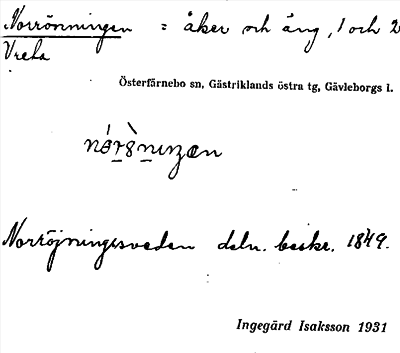 Norrönningen = åker och äng, 1 och 2
Vreta
Österfärnebo sn, Gästriklands östra tg, Gävleborgs l.
Norröjningesvedan deln. beskr. 1849.
Ingegärd Isaksson 1931